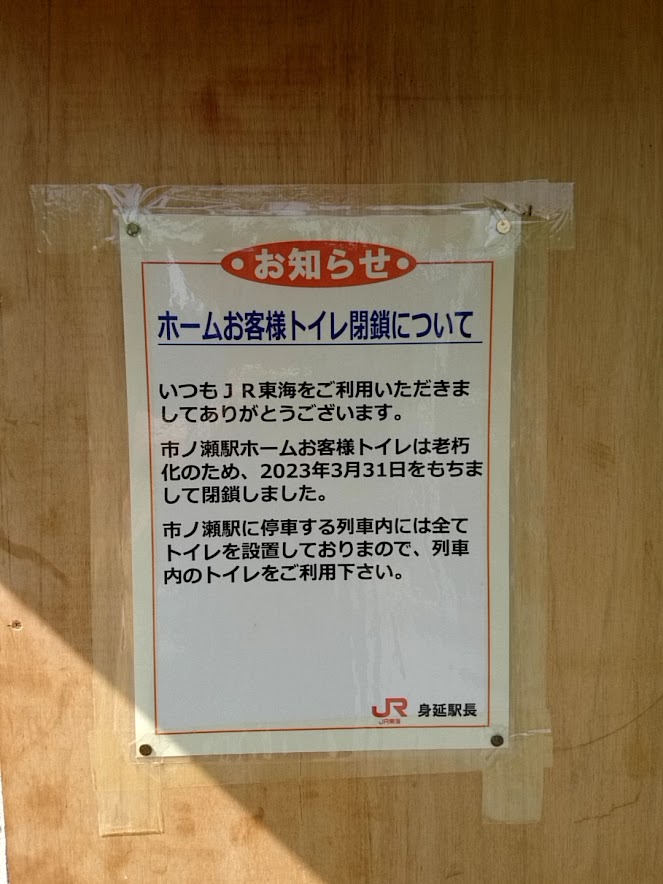 お知らせ
ホームお客様トイレ閉鎖について
いつもJR東海をご利用いただきま
してありがとうございます。
市ノ瀬駅ホームお客様トイレは老朽
化のため、2023年3月31日をもちま
して閉鎖しました。
市ノ瀬駅に停車する列車内には全て
トイレを設置しておりまので、列車
内のトイレをご利用下さい。
JR 身延駅長
JR東海